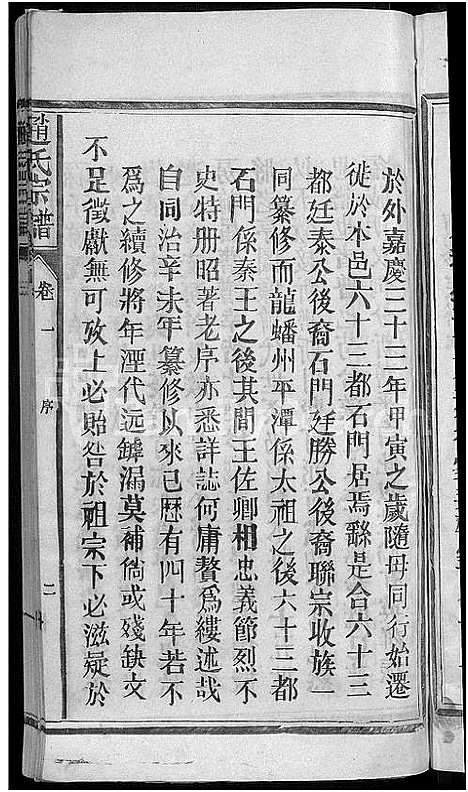 於外嘉慶三十三年甲寅之歲隨母同行始遷
徙於本邑六十三都石門居焉繇是合六十三
都廷泰公後裔石門廷勝公後裔聯宗收族一
同纂修而龍蟠州平潭係太祖之後六十三都
石門係秦王之後其間王佐卿相忠義節烈不
史特册昭著老序亦悉詳誌何庸贅爲縷述哉
自同治辛未年纂修以來已歷有四十年若不
爲之續修將年湮代远罅漏莫補倘或殘缺文
不足徵獻無可攷上必貽咎於祖宗下必滋疑於
趙氏宗譜
卷一
序
二